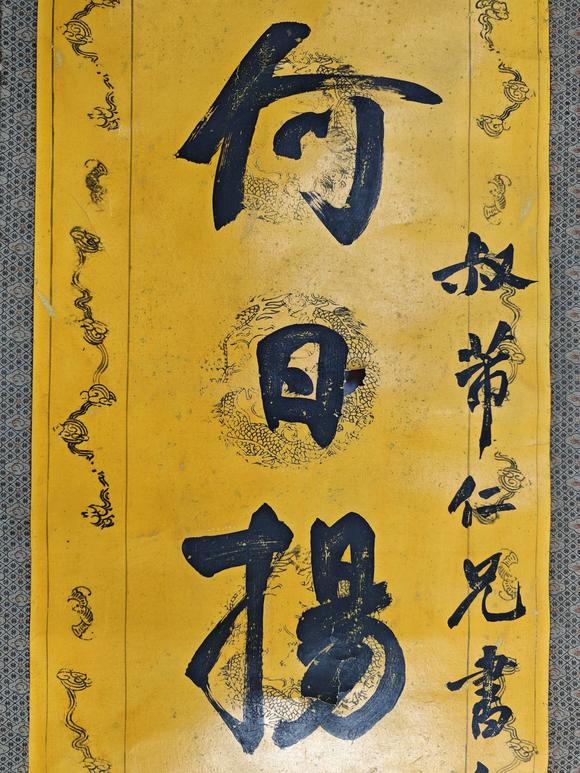 叔芾仁兄書
何日揚